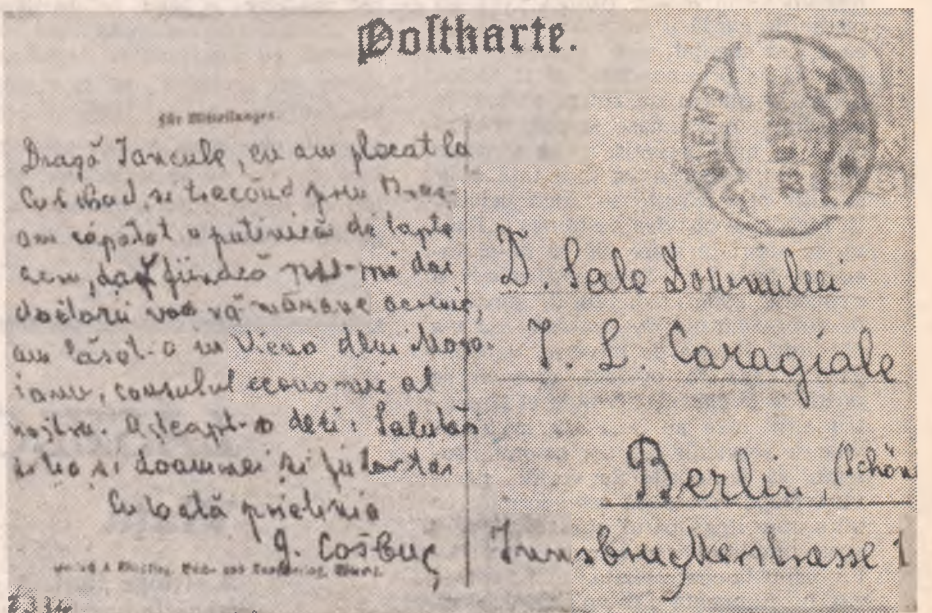 Postkarte.
für Mitteilungen
WIEN
Dragă Iancule, eu am plecat la
și trecând prin
am căpătat o putinică de lapte
acru, dar fiindcă nu-mi dau
doctorii voe să mănânc acreme,
am lăsat-o în Viena dlui
consulul economic al
nostru. Așteapt-o deci: Salutări
și ție și doamnei și
Cu toată prietenia
G. Coșbuc
D. Sale Domnului
I. L. Caragiale
Berlin, (Schön
Innsbruckerstrasse 1